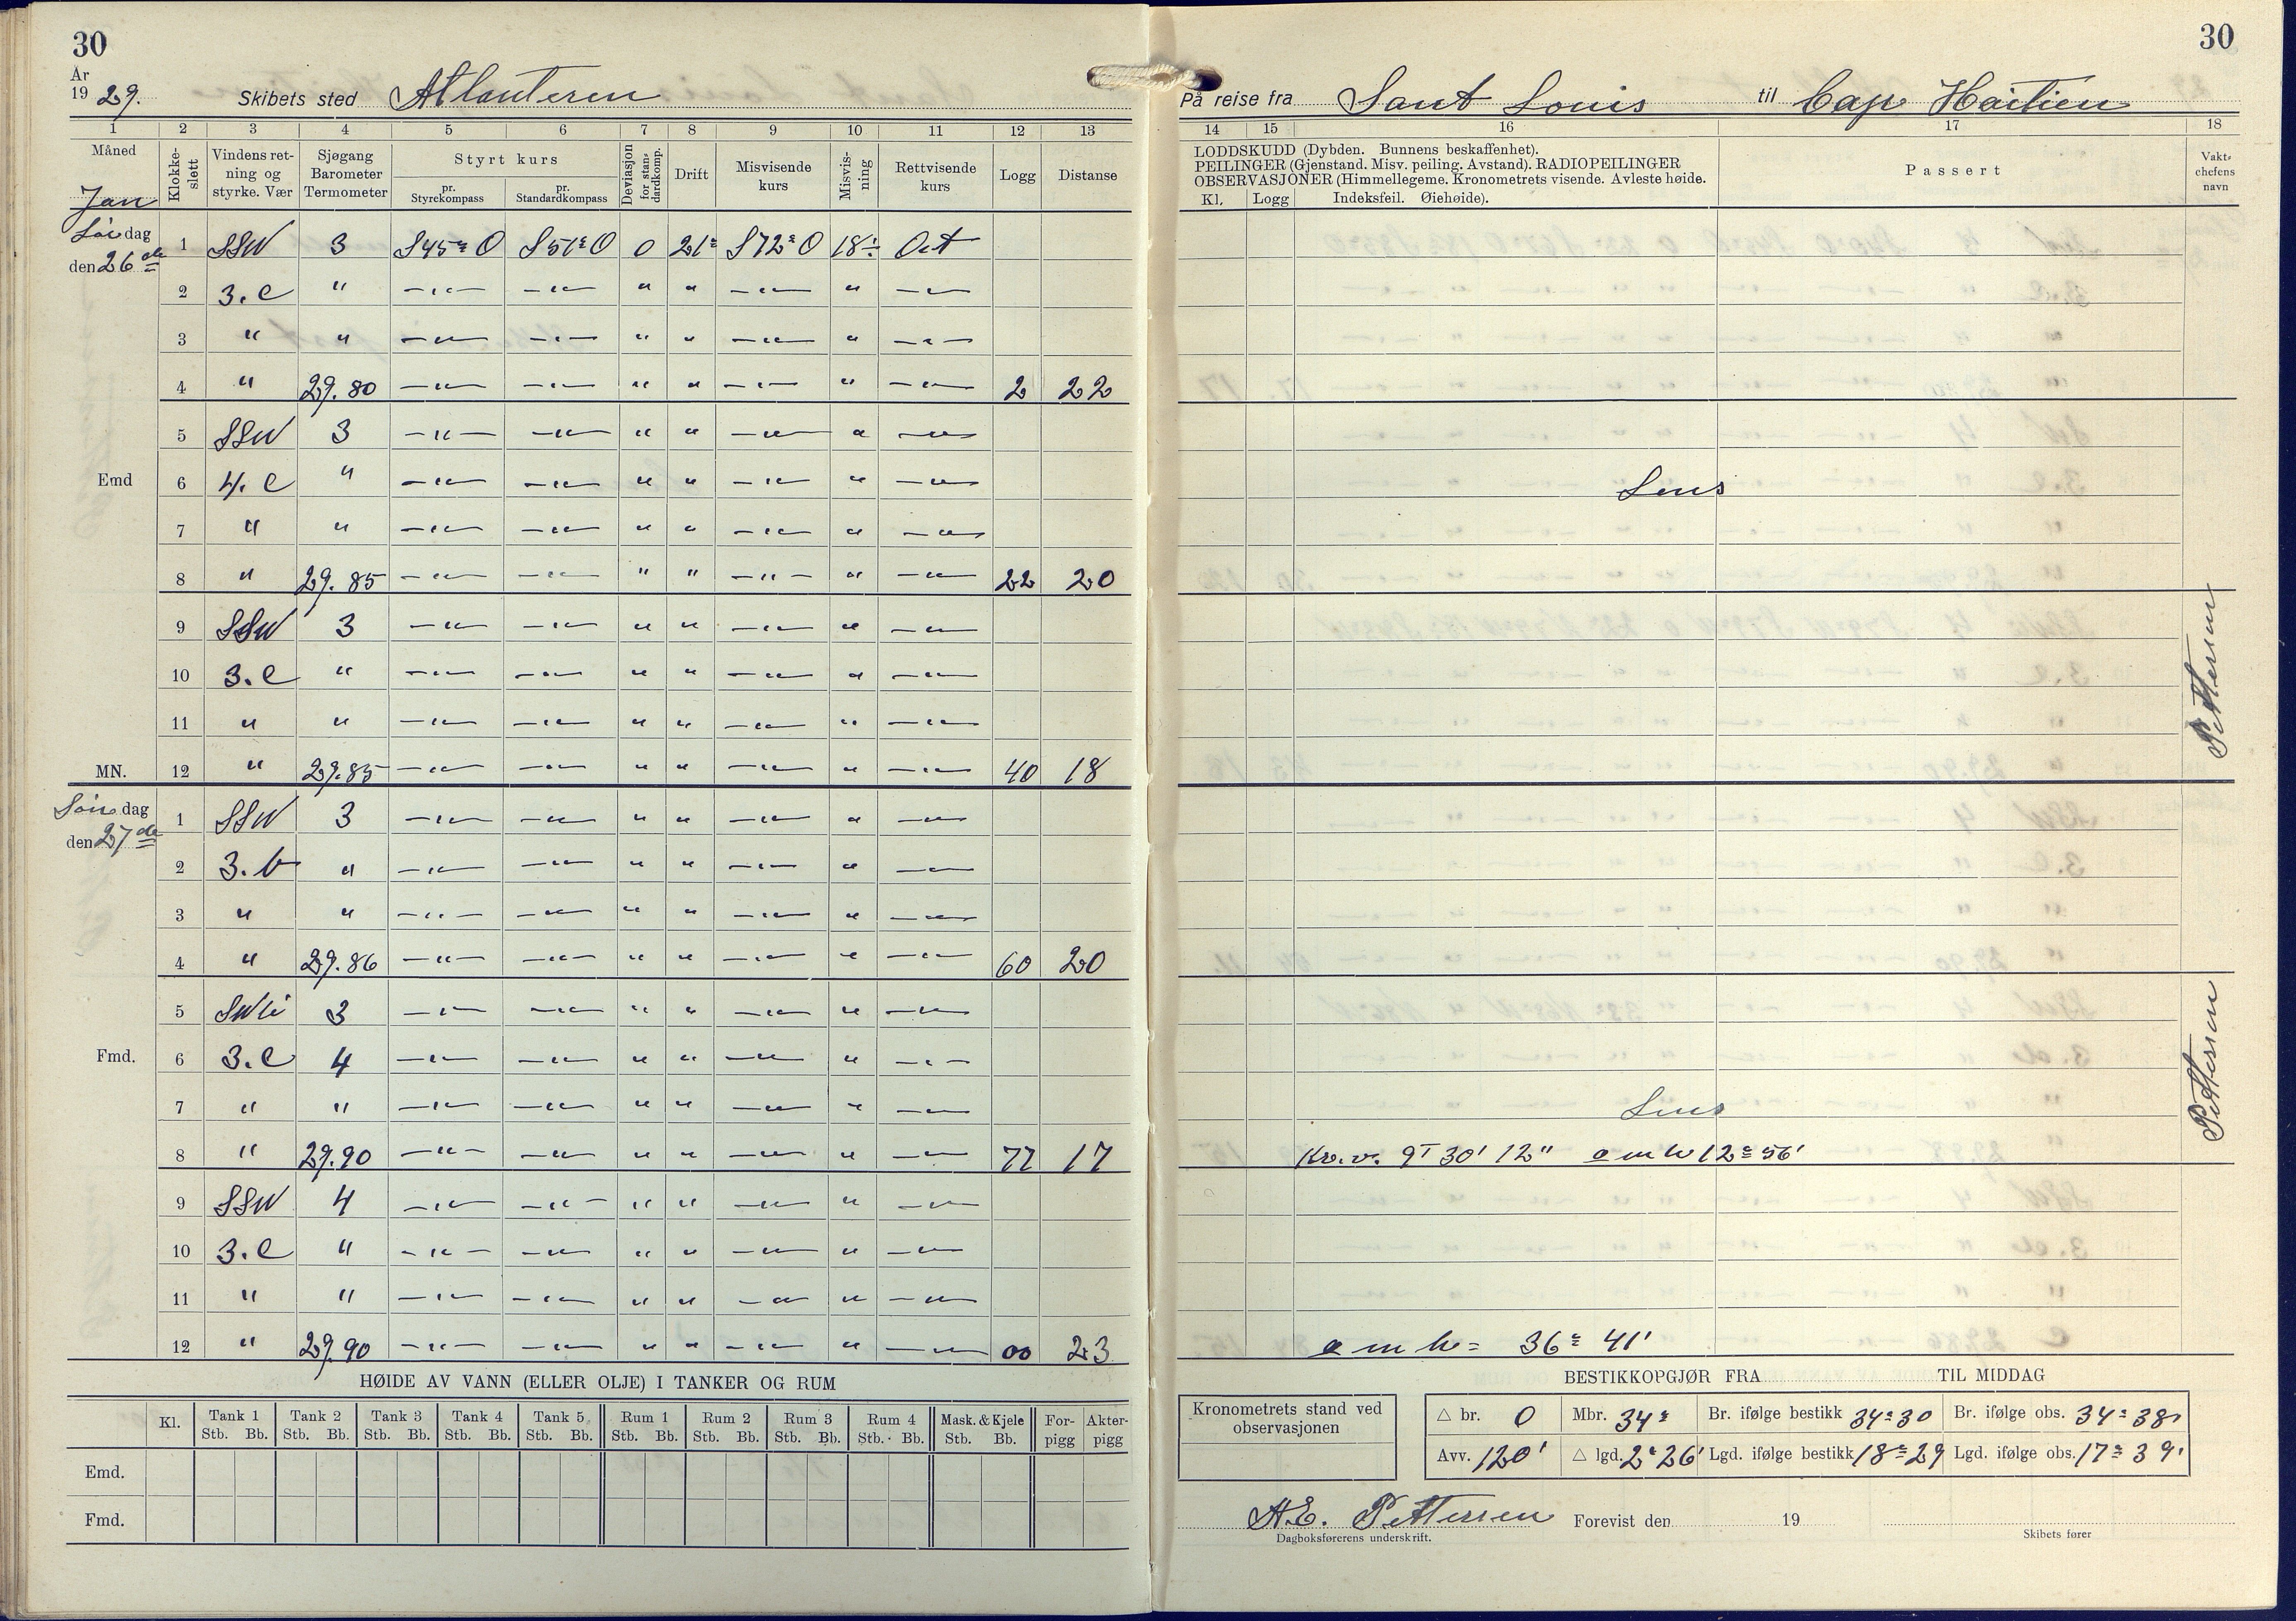 30
År
19 29. Skibets sted Atlanteren
1 2 3 4 5 6 7 8 9 10 11 12 13
Måned Jan
Klokke-slett
Vindens retning og styrke. Vær
Sjøgang Barometer Termometer
Styrt kurs
pr. Styrekompass
pr. Standardkompass
Deviasjon for standardkomp.
Drift
Misvisende kurs
Misvisning
Rettvisende kurs
Logg
Distanse
dag
den 26 de
1 SSW 3 S45° O S51° O 0 21° S72° O 18° Ost
2 3. c " —"— —"— " " —"— " —"—
3 " " —"— —"— " " —"— " —"—
4 " 29.80 —"— —"— " " —"— " —"— 2 22
5 SSW 3 —"— —"— " " —"— " —"—
Emd 6 4. c " —"— —"— " " —"— " —"—
7 " " —"— —"— " " —"— " —"—
8 " 29.85 —"— —"— " " —"— " —"— 22 20
9 SSW 3 —"— —"— " " —"— " —"—
10 3. c " —"— —"— " " —"— " —"—
11 " " —"— —"— " " —"— " —"—
MN. 12 " 29.85 —"— —"— " " —"— " —"— 40 18
dag
den 27 de
1 SSW 3 —"— —"— " " —"— " —"—
2 3. b " —"— —"— " " —"— " —"—
3 " " —"— —"— " " —"— " —"—
4 " 29.86 —"— —"— " " —"— " —"— 60 20
5 3 —"— —"— " " —"— " —"—
Fmd. 6 3. c 4 —"— —"— " " —"— " —"—
7 " " —"— —"— " " —"— " —"—
8 " 29.90 —"— —"— " " —"— " —"— 77 17
9 SSW 4 —"— —"— " " —"— " —"—
10 3. c " —"— —"— " " —"— " —"—
11 " " —"— —"— " " —"— " —"—
12 " 29.90 —"— —"— " " —"— " —"— 00 23
HØIDE AV VANN (ELLER OLJE) I TANKER OG RUM
Kl. Tank 1 Tank 2 Tank 3 Tank 4 Tank 5 Rum 1 Rum 2 Rum 3 Rum 4 Mask. & Kjele For-pigg Akter-pigg
Stb. Bb. Stb. Bb. Stb. Bb. Stb. Bb. Stb. Bb. Stb. Bb. Stb. Bb. Stb. Bb. Stb. Bb. Stb. Bb.
Emd.
Fmd.
30
På reise fra Sant Louis til Cap Haitien
14 15 16 17 18
LODDSKUDD (Dybden. Bunnens beskaffenhet).
PEILINGER (Gjenstand. Misv. peiling. Avstand). RADIOPEILINGER
OBSERVASJONER (Himmellegeme. Kronometrets visende. Avleste høide.
Kl. Logg Indeksfeil. Øiehøide).
Passert
Vakt-chefens navn
Lens
Pettersen
Lens
Kr.v. 9T 30' 12" o m h 12° 56'
Pettersen
o m h = 36° 41'
BESTIKKOPGJØR FRA TIL MIDDAG
Kronometrets stand ved observasjonen
△ br. 0 Mbr. 34° Br. ifølge bestikk 34° 30 Br. ifølge obs. 34° 38'
Avv. 120' △ lgd. 2° 26' Lgd. ifølge bestikk 18° 29 Lgd. ifølge obs. 17° 39'
A.E. Pettersen Forevist den 19
Dagboksførerens underskrift. Skibets fører